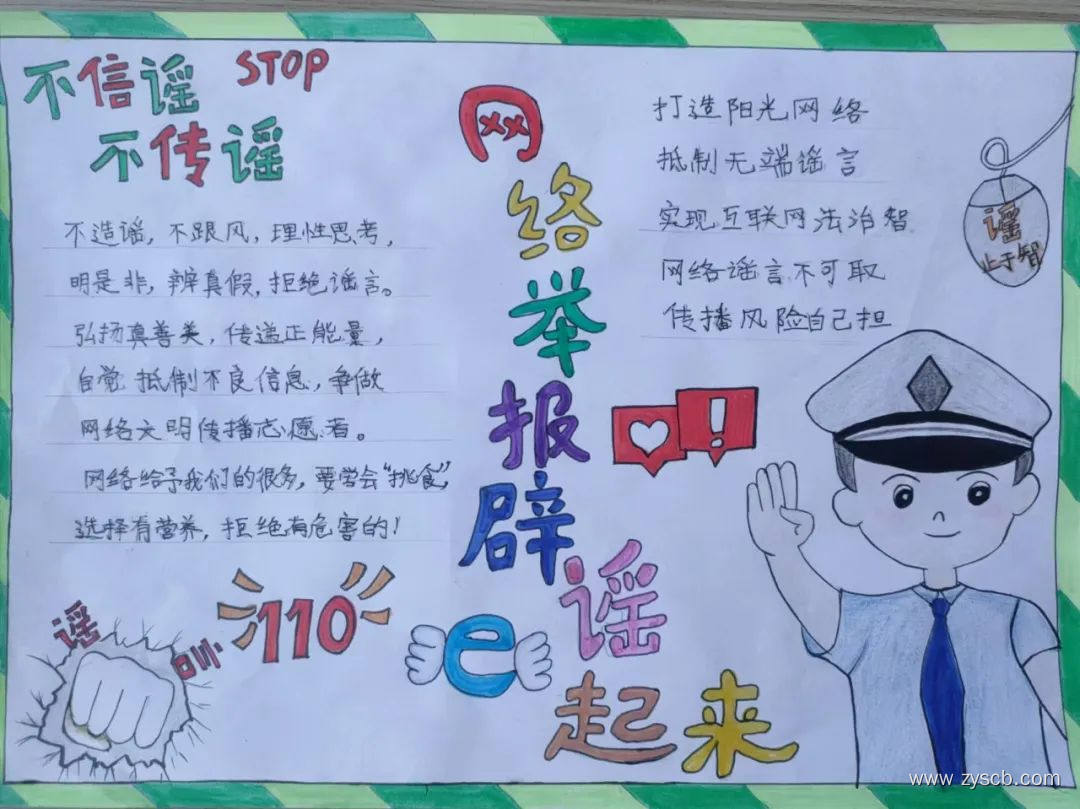 不信谣
STOP
不传谣
不造谣,不跟风,理性思考,
明是非,辨真假,拒绝谣言。
弘扬真善美,传递正能量,
自觉抵制不良信息,争做
网络文明传播志愿者。
网络给予我们的很多,要学会“挑食”
选择有营养,拒绝有危害的!
110
谣
言
网络举报辟谣起来
e
打造阳光网络
抵制无端谣言
实现互联网法治智
网络谣言不可取
传播风险自己担
谣
止于智
!
www.zyscb.com